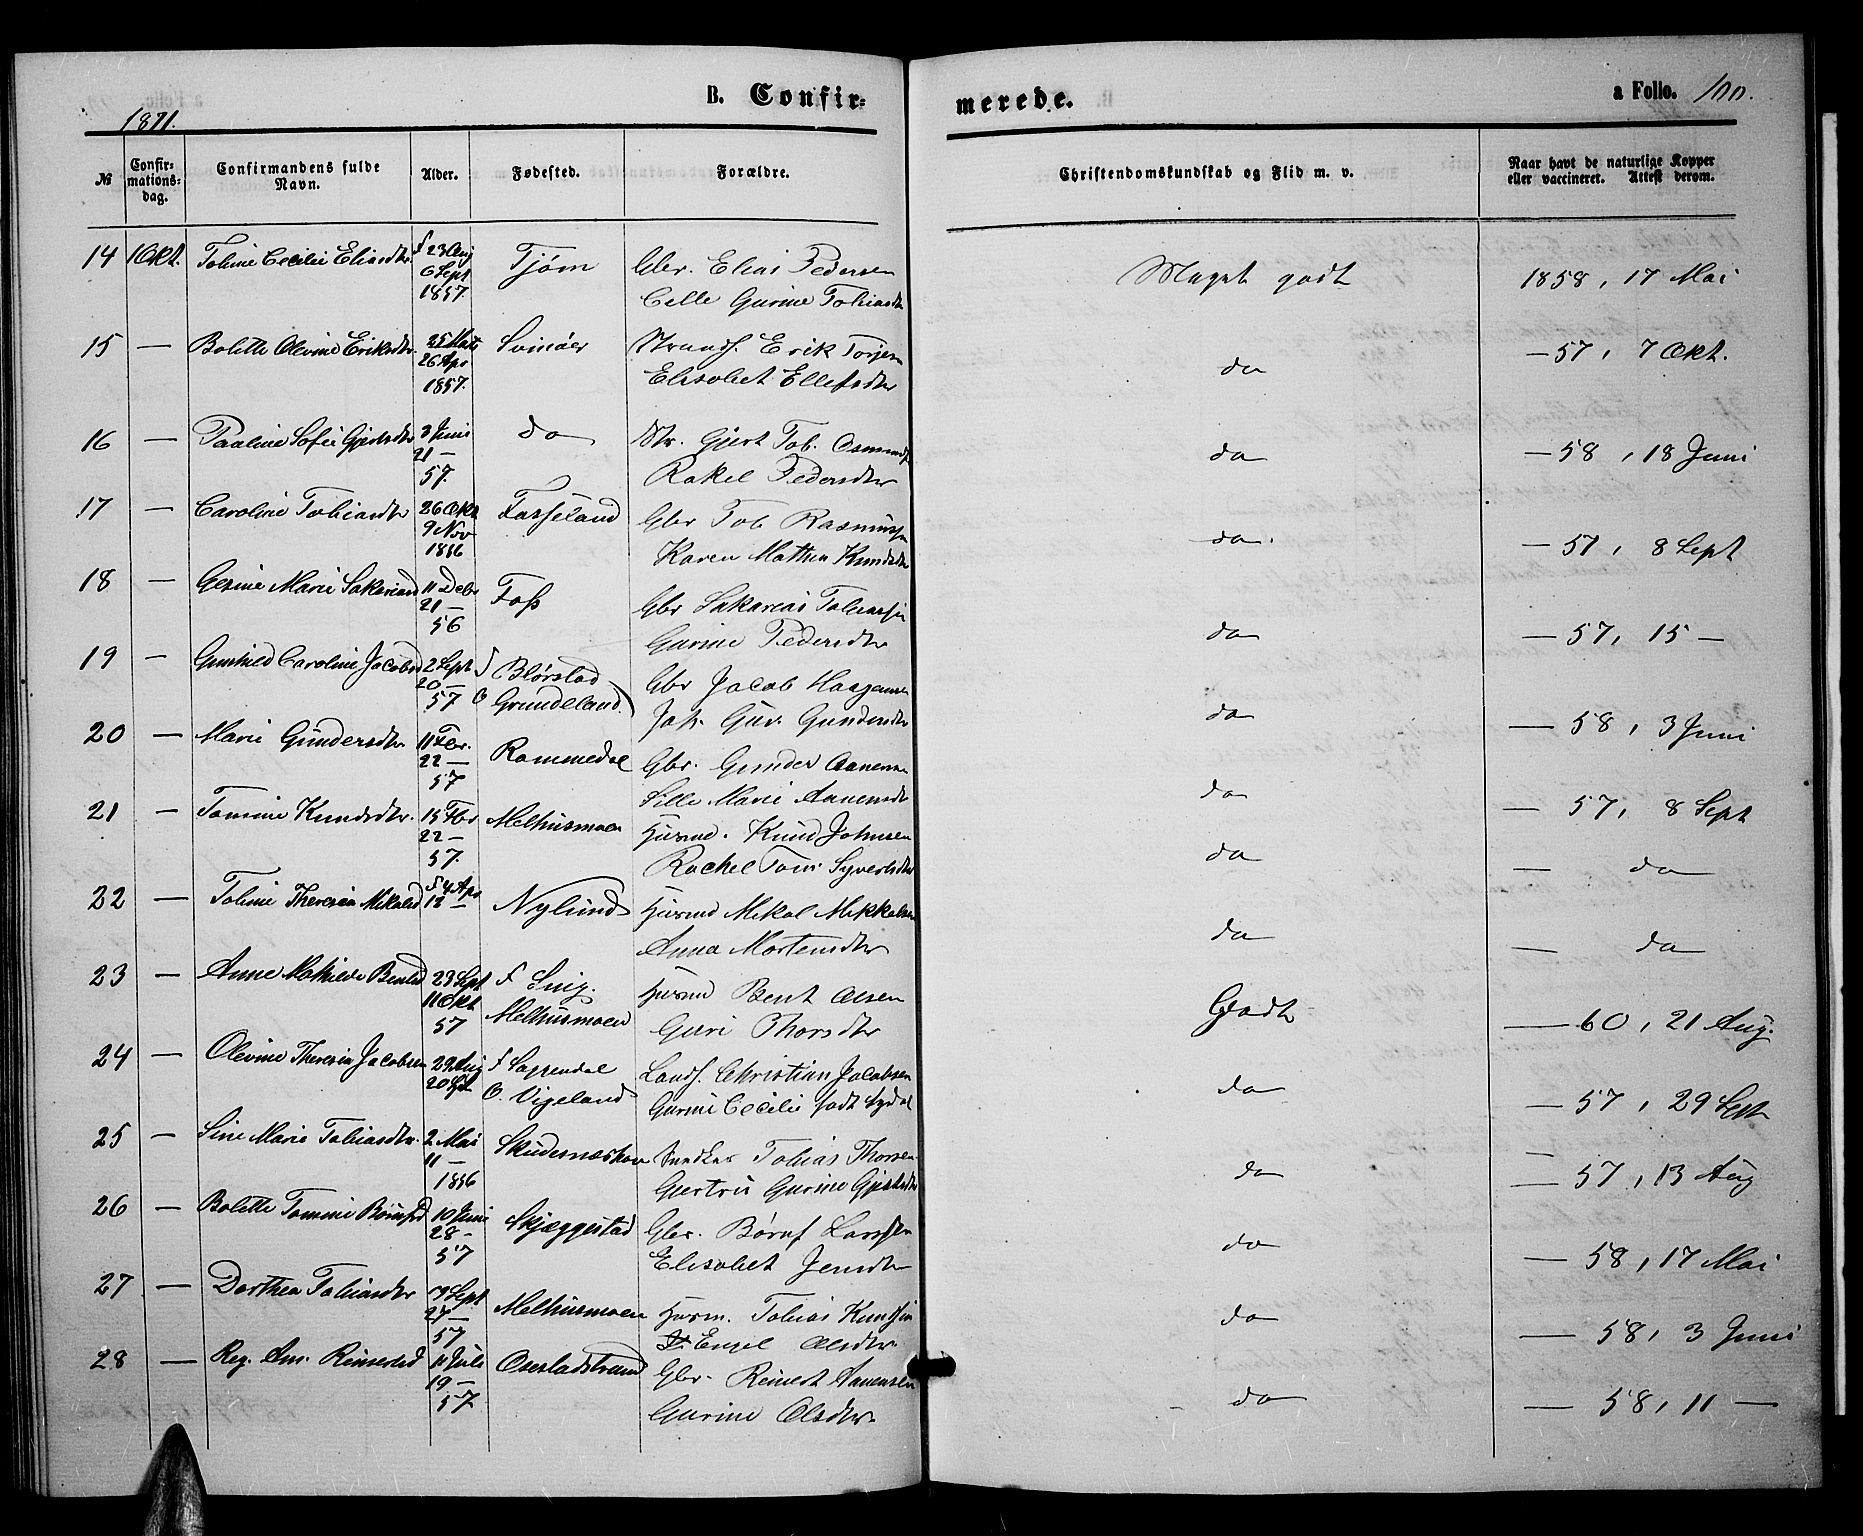 1871.
B. Confir-
merede.
a Folio. 100.
№
Confir-
mations-
dag.
Confirmandens fulde
Navn.
Alder.
Fødested.
Forældre.
Christendomskundskab og Flid m. v.
Naar havt de naturlige Kopper
eller vaccineret. Attest derom.
14 1 Okt. Toline Cecilie Eliasdtr f 23 Aug Tjøm Gbr. Elias Pedersen Meget godt 1858, 17 Mai
6 Sept
1857. Celle Gurine Tobiasdtr
15 — Bolette Olevine Eriksdtr 25 Mats Svinøer Strands. Erik Torjesen do — 57, 7 Okt.
26 Apr
1857. Elisabet Ellefsdtr
16 — Pauline Sofie Gjertsdtr 3 Juni do Str. Gjert Tob. Osmunds do — 58, 18 Juni
21 —
57. Rakel Pedersdtr
17 — Caroline Tobiasdtr 26 Okt Fasseland Gbr Tob Rasmussen do. — 57, 8 Sept
9 Nov
1856 Karen Mathea Knudsdtr
18 — Gesine Marie Sakariasd 11 Debr Foss Gbr Sakarias Tobiassen do — 57, 15 —
21 —
56 Gurine Pedersdtr
19 — Gunhild Caroline Jacobsd 2 Sept f Blørstad Gbr Jacob Haagensen do — 58, 3 Juni
20 —
57 O Grundeland. Joh. Gur. Gundersdtr
20 — Marie Gundersdtr 11 Fbr. Rommedal Gbr. Gunder Aanensen do — 57, 8 Sept
22 —
57 Sille Marie Aanensdtr
21 — Tomine Knudsdtr. 15 Fbr Melhusmoen Husmd. Knud Johnsen do — do
22 —
57. Rachel Tom. Syvertsdtr
22 — Toline Theresia Mikalsd f 4 Apr Nylund Husmd Mikal Mikkelsen do — do
12 — Anna Mortensdtr
23 — Anne Mathilde Bentsd 23 Sept f Snig. Husmd Bent Olsen Godt — 60, 21 Aug.
11 Okt Melhusmoen
57 Guri Thorsdtr
24 — Olevine Theresia Jacobsen 29 Aug f Lassendal Lands. Christian Jacobsen do — 57, 29 Sept
20 Spt O. Vigeland Gurine Cecilie født Sydal
25 — Sine Marie Tobiasdtr. 2 Mai Skudesneshavn Tobias Thorsen do — 57, 13 Aug
11 —
1856 Gjertru Gurine Gjertsdtr
26 — Bolette Tomine Børufsd 10 Juni Skjæggestad Gbr. Børuf Larssen do — 58, 17 Mai
28 —
57 Elisabet Jensdtr
27 — Dorthea Tobiasdtr 19 Sept Melhusmoen Husm. Tobias Knudsen do — 58, 3 Juni
27 —
57 Engel Olsdtr
28 — Reg. An. Reinertsd 11 Juli Osesladstrand Gbr. Reinert Aanensen do — 58, 11 —
19 —
57 Gurine Olsdtr